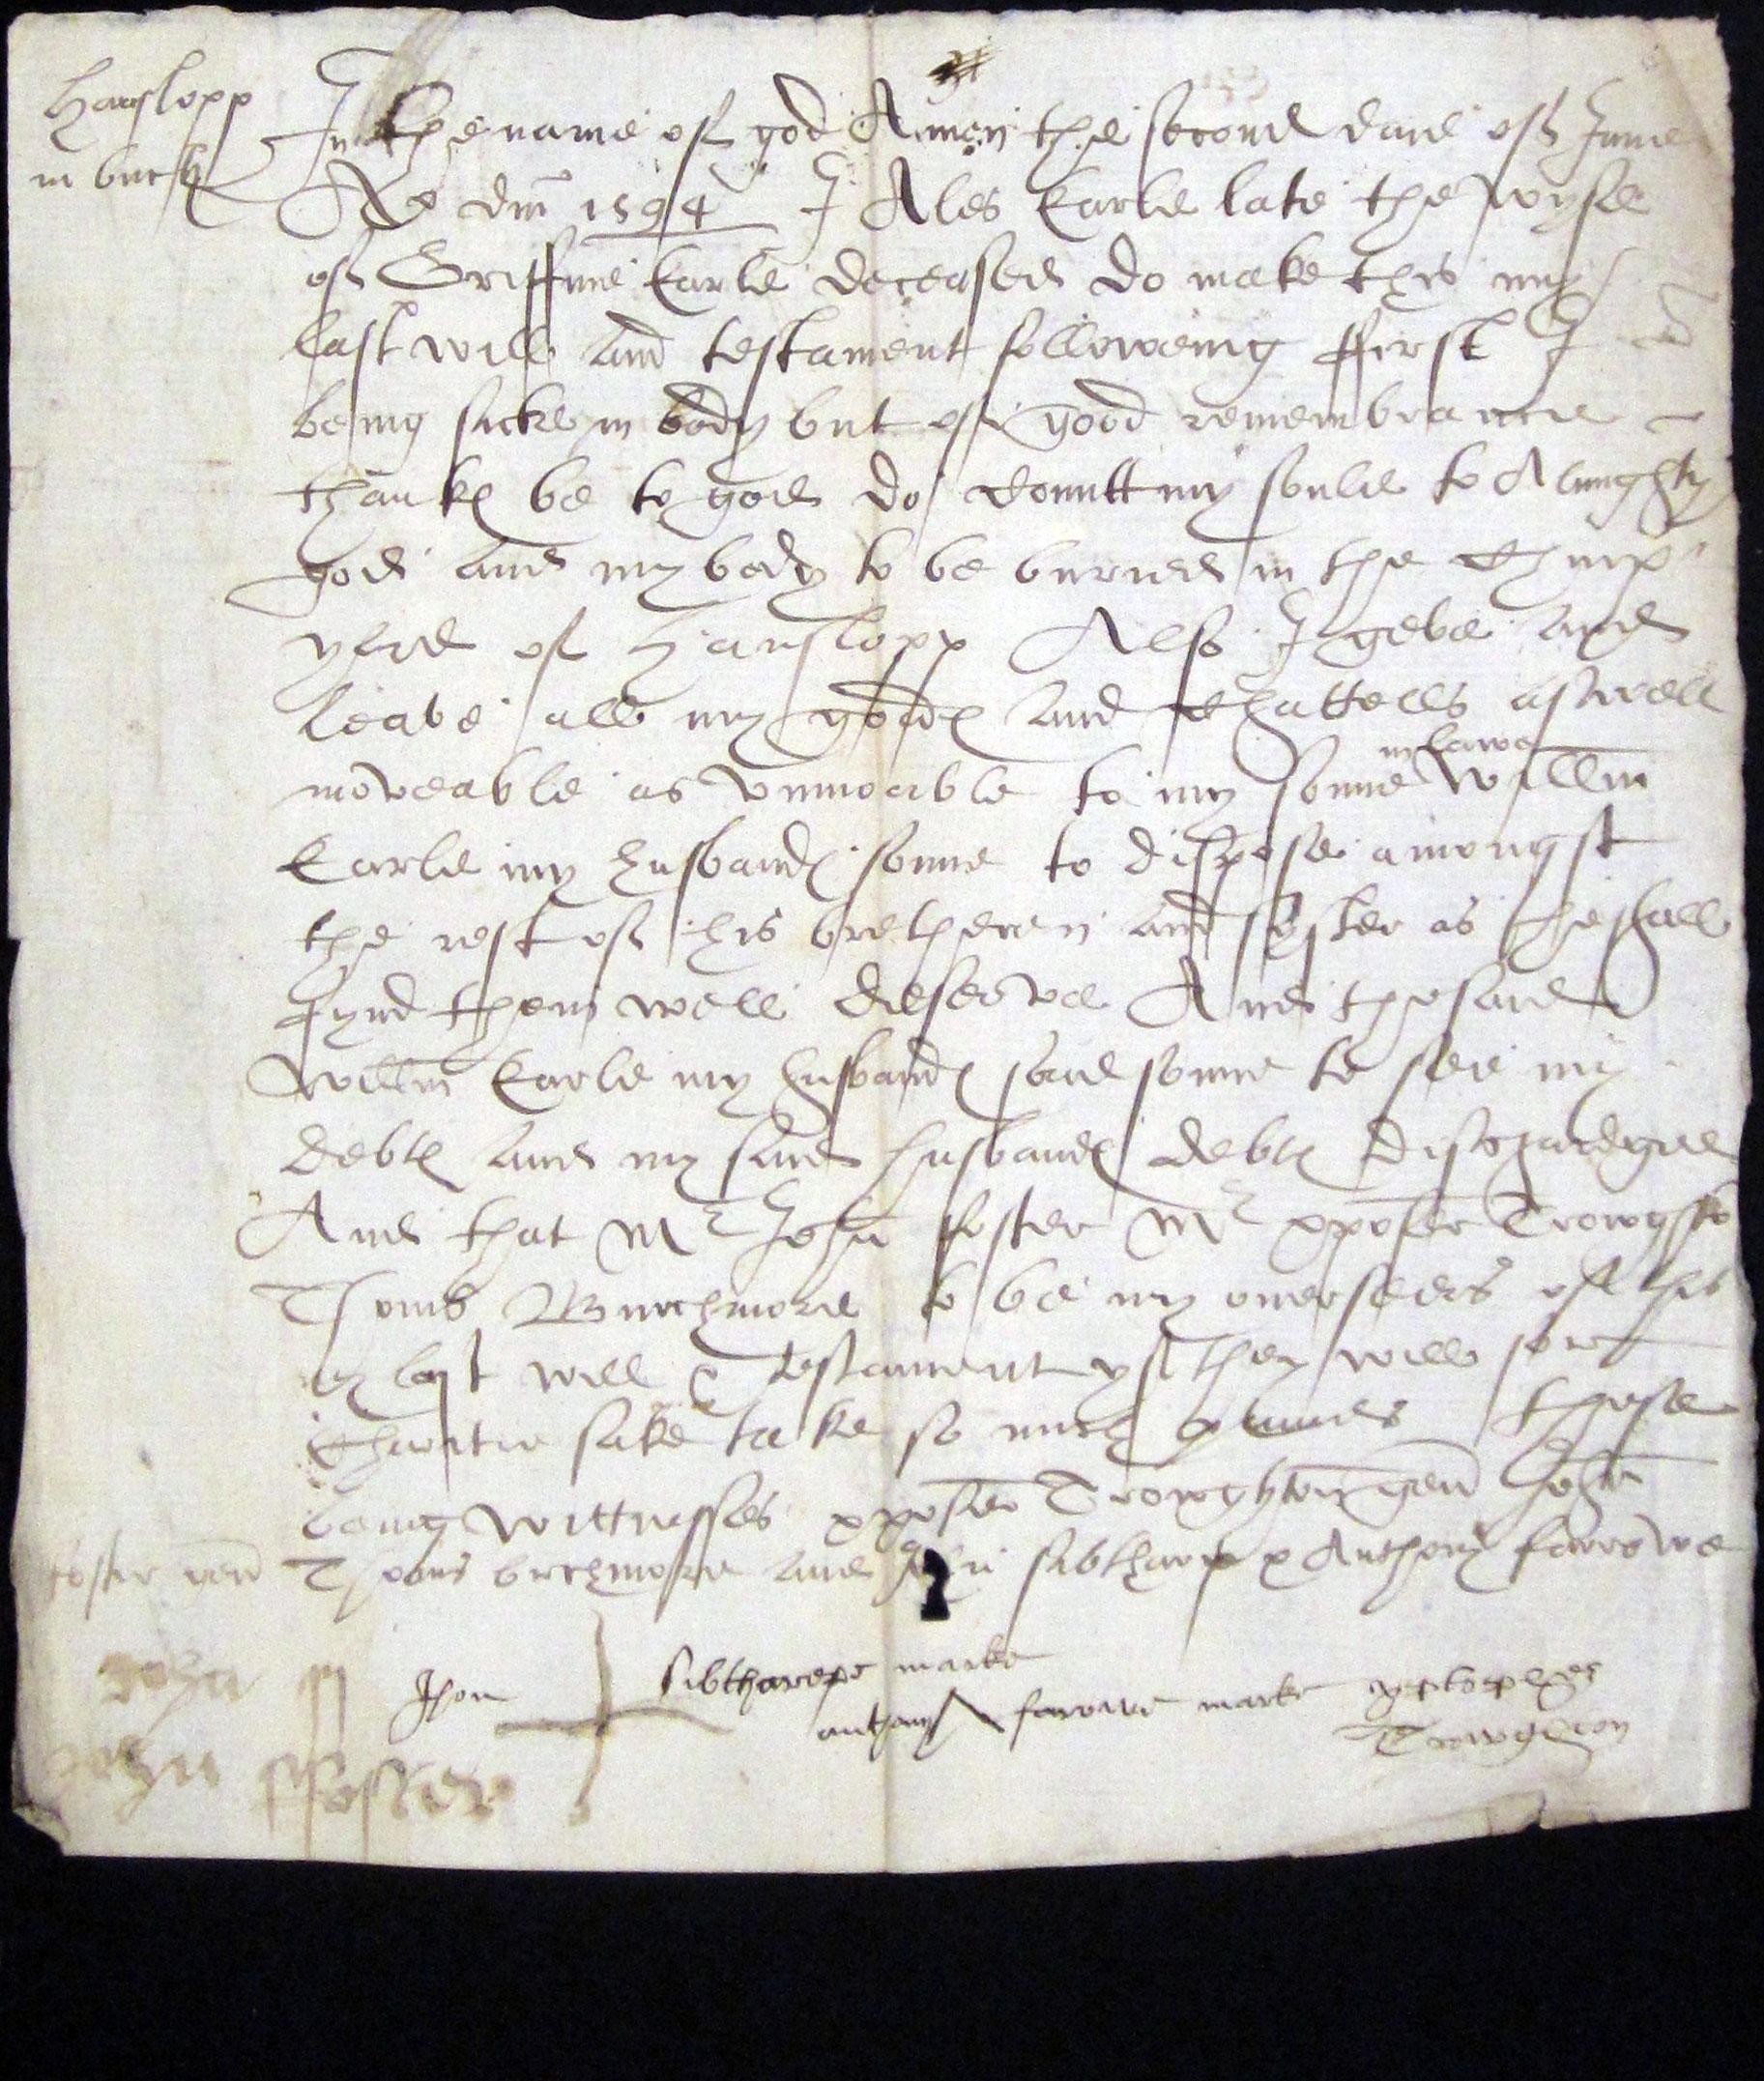 Hanslopp
in buck
In the name of god Amen the second daie of June
Ao dm 1594 I Ales Earle late the wyfe
of Griffine Earle deceased do make this my
last will and testament followeing ffirst I
being sicke in body but of good remembrance
thankes be to god do comitt my soule to Almyghty
god and my body to be buried in the Church
yard of Hanslopp Also I geve and
leave all my goodes and Chattells aswell
in lawe
moveable as vnmoable to my sonne Willm
Earle my husbandes sonne to dispose amongst
the rest of his bretheren and syster as he shall
fynd them well deserve And the said
Willm Earle my husbandes said sonne to see my
debtes and my said husbandes debtes dischardged
And that Mr John foster Mr xpofer Trowghto
Thoms Burchmore to be my overseers of this
my last will & testament yf they will for
Charitie sake take so much paines these
being wittnesses xpofer Trowghton gen John
foster gen Thoms burchmore and John sibtharp & Anthony farrowe
Jhon sibtharpe marke
anthony farowe marke
John ffoster
Trowghton